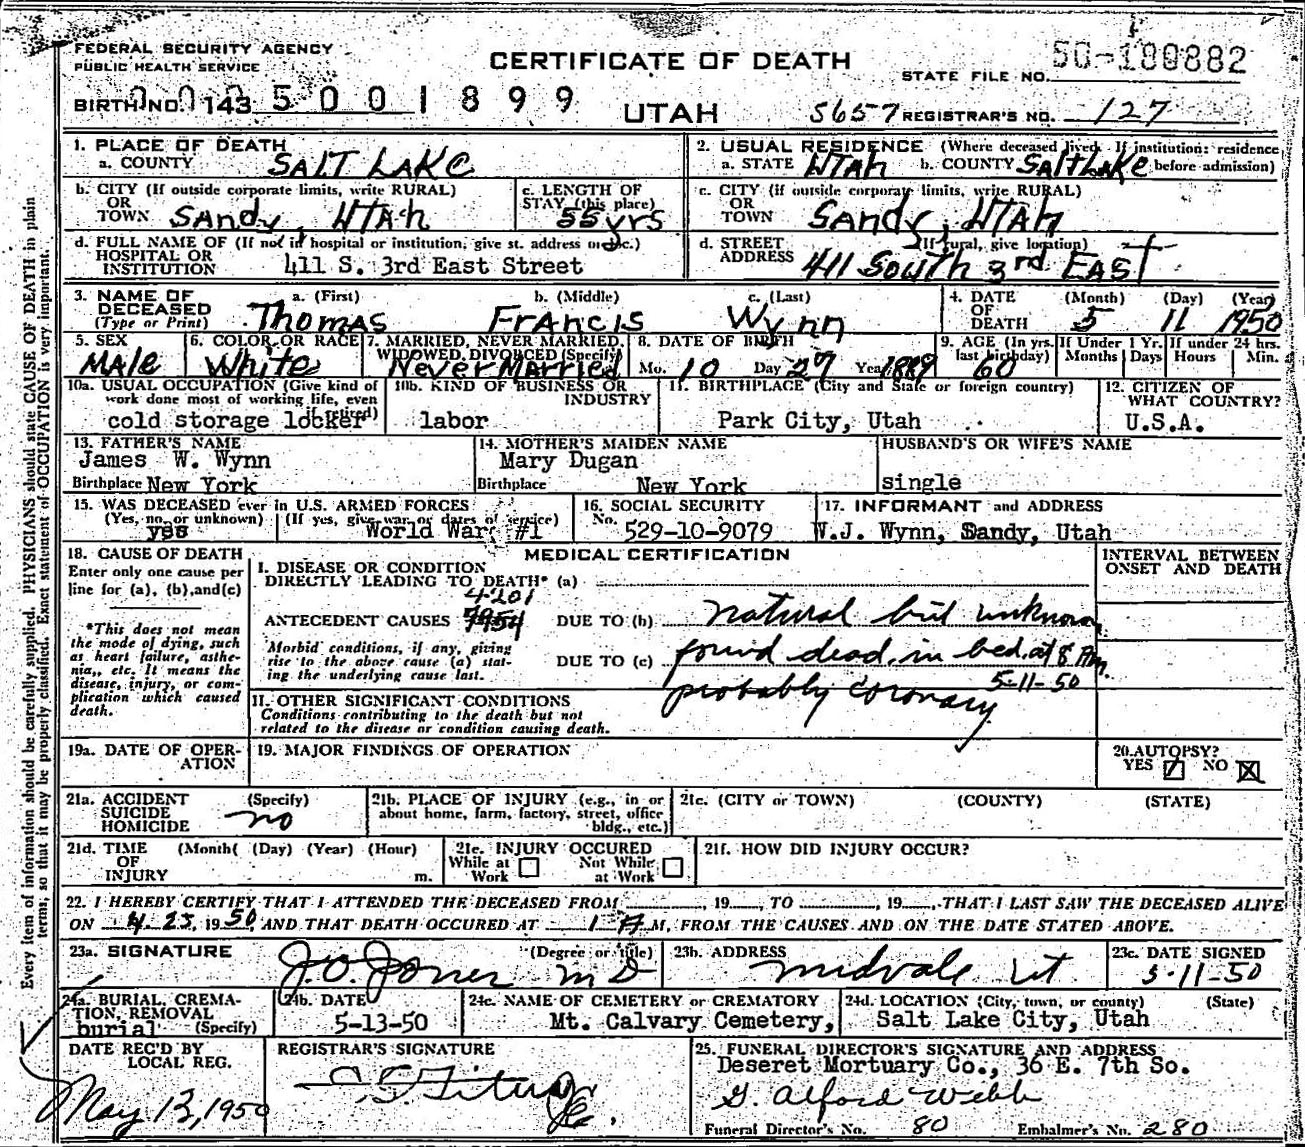 FEDERAL SECURITY AGENCY
PUBLIC HEALTH SERVICE
CERTIFICATE OF DEATH
STATE FILE NO. 50-180882
BIRTH NO. 143 5001899
UTAH
5657 REGISTRAR'S NO. 127
1. PLACE OF DEATH
a. COUNTY SALT LAKE
2. USUAL RESIDENCE (Where deceased lived. If institution: residence before admission)
a. STATE UTAH b. COUNTY SALT LAKE
b. CITY (If outside corporate limits, write RURAL) OR TOWN SANdy, UTAH
c. LENGTH OF STAY (this place) 55 yrs
c. CITY (if outside corporate limits, write RURAL) OR TOWN SANdy, UTAH
d. FULL NAME OF (If not in hospital or institution, give st. address or loc.) HOSPITAL OR INSTITUTION 411 S. 3rd East Street
d. STREET ADDRESS (If rural, give location) 411 SOUTH 3rd EAST
3. NAME OF DECEASED (Type or Print)
a. (First) Thomas b. (Middle) Francis c. (Last) Wynn
4. DATE OF DEATH (Month) (Day) (Year) 5 11 1950
5. SEX MALE
6. COLOR OR RACE White
7. MARRIED, NEVER MARRIED, WIDOWED, DIVORCED (Specify) Never Married
8. DATE OF BIRTH Mo. 10 Day 27 Year 1889
9. AGE (In yrs. last birthday) 60
If Under 1 Yr. Months Days
If under 24 hrs. Hours Min.
10a. USUAL OCCUPATION (Give kind of work done most of working life, even if retired) cold storage locker
10b. KIND OF BUSINESS OR INDUSTRY labor
11. BIRTHPLACE (City and State or foreign country) Park City, Utah
12. CITIZEN OF WHAT COUNTRY? U.S.A.
13. FATHER'S NAME James W. Wynn
Birthplace New York
14. MOTHER'S MAIDEN NAME Mary Dugan
Birthplace New York
HUSBAND'S OR WIFE'S NAME single
15. WAS DECEASED ever in U.S. ARMED FORCES
(Yes, no, or unknown) yes
(If yes, give war or dates of service) World War #1
16. SOCIAL SECURITY No. 529-10-9079
17. INFORMANT and ADDRESS W.J. Wynn, Sandy, Utah
18. CAUSE OF DEATH
Enter only one cause per line for (a), (b), and (c)
*This does not mean the mode of dying, such as heart failure, asthenia, etc. It means the disease, injury, or complication which caused death.
MEDICAL CERTIFICATION
INTERVAL BETWEEN ONSET AND DEATH
I. DISEASE OR CONDITION DIRECTLY LEADING TO DEATH* (a)
4201
ANTECEDENT CAUSES 7954 DUE TO (b) natural but unknown
Morbid conditions, if any, giving rise to the above cause (a) stating the underlying cause last.
DUE TO (c) found dead in bed at 8 Am.
5-11-50
probably coronary
II. OTHER SIGNIFICANT CONDITIONS
Conditions contributing to the death but not related to the disease or condition causing death.
19a. DATE OF OPERATION
19. MAJOR FINDINGS OF OPERATION
20. AUTOPSY? YES NO
21a. ACCIDENT SUICIDE HOMICIDE (Specify) no
21b. PLACE OF INJURY (e.g., in or about home, farm, factory, street, office bldg., etc.)
21c. (CITY or TOWN) (COUNTY) (STATE)
21d. TIME OF INJURY (Month) (Day) (Year) (Hour) m.
21e. INJURY OCCURED While at Work Not While at Work
21f. HOW DID INJURY OCCUR?
22. I HEREBY CERTIFY THAT I ATTENDED THE DECEASED FROM , 19 , TO , 19 , THAT I LAST SAW THE DECEASED ALIVE
ON 4-23, 1950, AND THAT DEATH OCCURED AT 1 A M, FROM THE CAUSES AND ON THE DATE STATED ABOVE.
23a. SIGNATURE (Degree or title) J.O. Jones MD
23b. ADDRESS Midvale Ut
23c. DATE SIGNED 5-11-50
24a. BURIAL, CREMATION, REMOVAL (Specify) burial
24b. DATE 5-13-50
24c. NAME OF CEMETERY or CREMATORY Mt. Calvary Cemetery,
24d. LOCATION (City, town, or county) (State) Salt Lake City, Utah
DATE REC'D BY LOCAL REG. May 13, 1950
REGISTRAR'S SIGNATURE
25. FUNERAL DIRECTOR'S SIGNATURE AND ADDRESS
Deseret Mortuary Co., 36 E. 7th So.
G. Alford Webb
Funeral Director's No. 80 Embalmer's No. 280
Every item of information should be carefully supplied. PHYSICIANS should state CAUSE OF DEATH in plain
terms, so that it may be properly classified. Exact statement of OCCUPATION is very important.